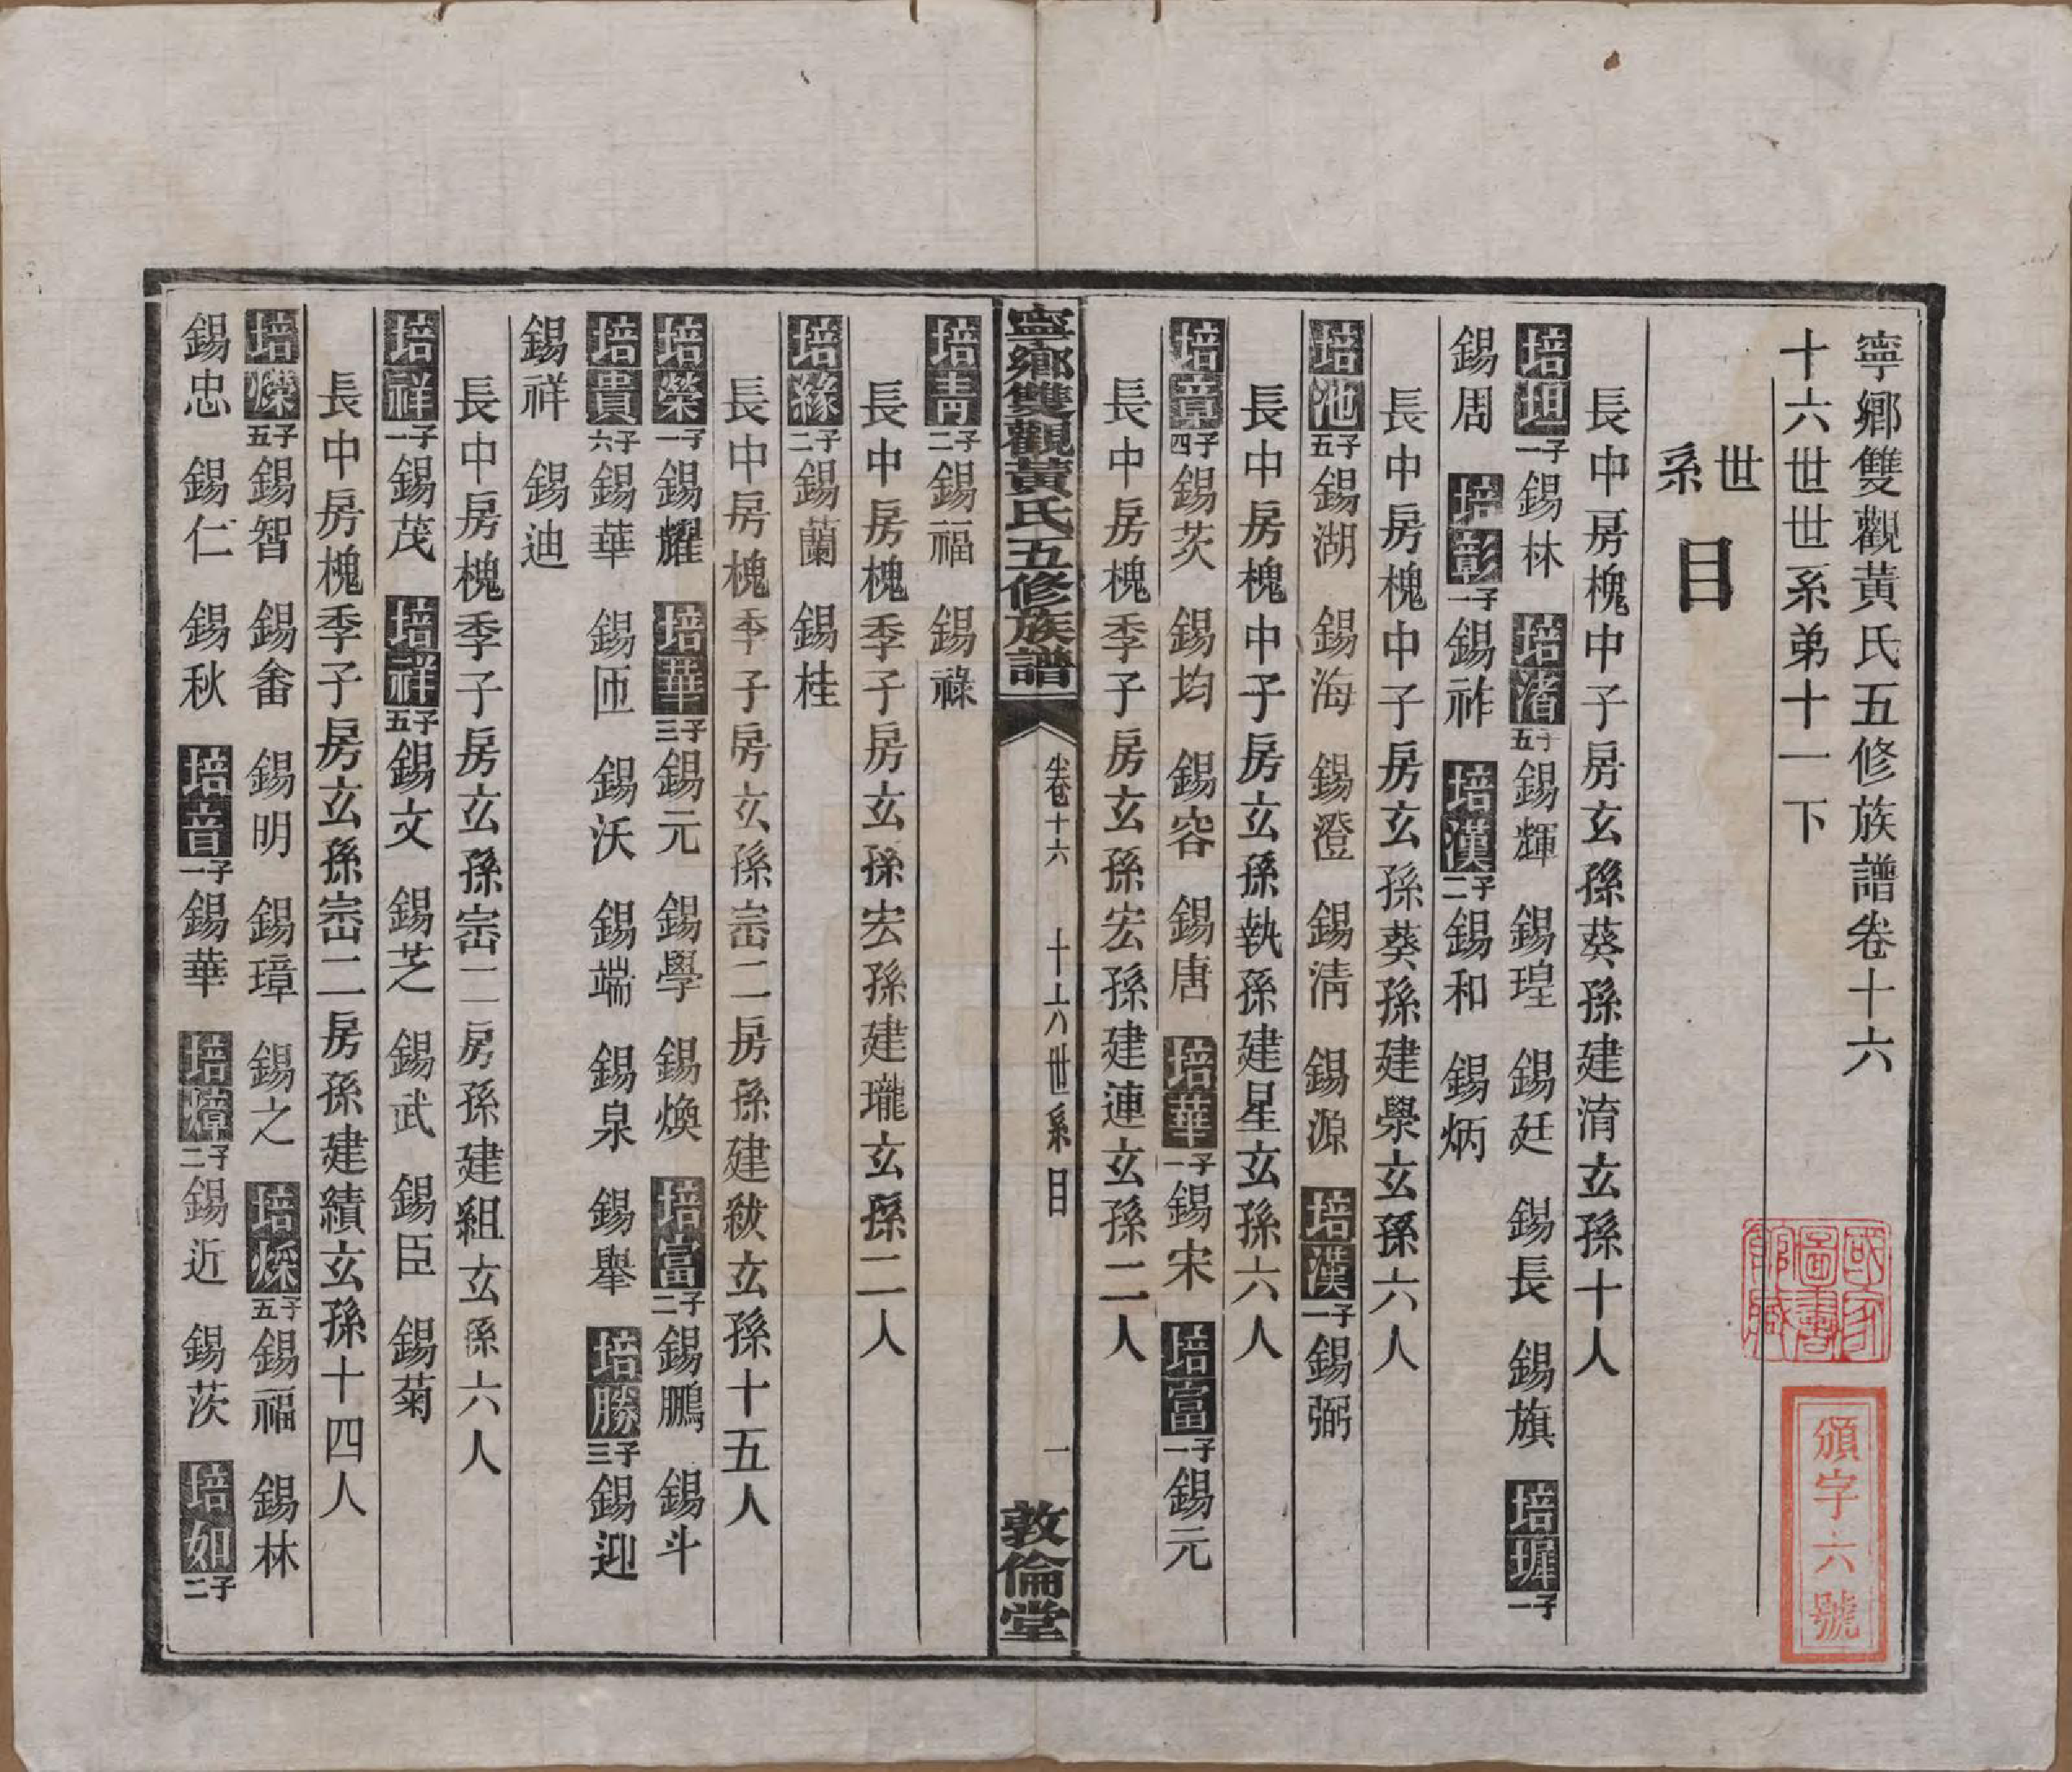 寧鄉雙觀黃氏五修族譜卷十六
十六世世系弟十一下
世系目
長中房槐中子房玄孫葵孫建淯玄孫十人
培坦一子錫林 培渚五子錫輝 錫瑝 錫廷 錫長 錫旗 培墀一子
錫周 培彰一子錫祚 培漢二子錫和 錫炳
長中房槐中子房玄孫葵孫建學玄孫六人
培池五子錫湖 錫海 錫澄 錫清 錫源 培漢一子錫弼
長中房槐中子房玄孫執孫建星玄孫六人
培章四子錫茨 錫均 錫容 錫唐 培華一子錫宋 培富一子錫元
長中房槐季子房玄孫宏孫建連玄孫二人
寧鄉雙觀黃氏五修族譜 卷十六 十六世系目 一 敦倫堂
培青二子錫福 錫祿
長中房槐季子房玄孫宏孫建瓏玄孫二人
培緣二子錫蘭 錫桂
長中房槐季子房玄孫崈二房孫建紱玄孫十五人
培榮一子錫耀 培華三子錫元 錫學 錫煥 培富二子錫鵬 錫斗
培貴六子錫華 錫匝 錫沃 錫端 錫泉 錫舉 培勝三子錫迎
錫祥 錫迪
長中房槐季子房玄孫崈二房孫建組玄孫六人
培祥一子錫茂 培祥五子錫文 錫芝 錫武 錫臣 錫菊
長中房槐季子房玄孫崈二房孫建績玄孫十四人
培爍五子錫智 錫畬 錫明 錫璋 錫之 培烁五子錫福 錫林
錫忠 錫仁 錫秋 培音一子錫華 培熺二子錫近 錫茨 培如二子
國家圖書館藏
頒字六號